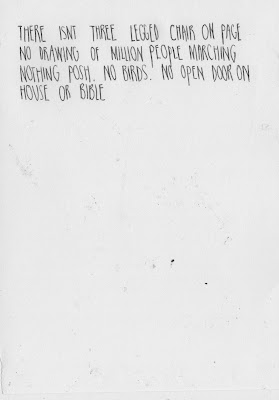 THERE ISNT THREE LEGGED CHAIR ON PAGE
NO DRAWING OF MILLION PEOPLE MARCHING
NOTHING POSH. NO BIRDS. NO OPEN DOOR ON
HOUSE OR BIBLE